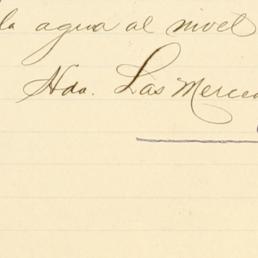 la agua al nivel
Hda. Las Merced